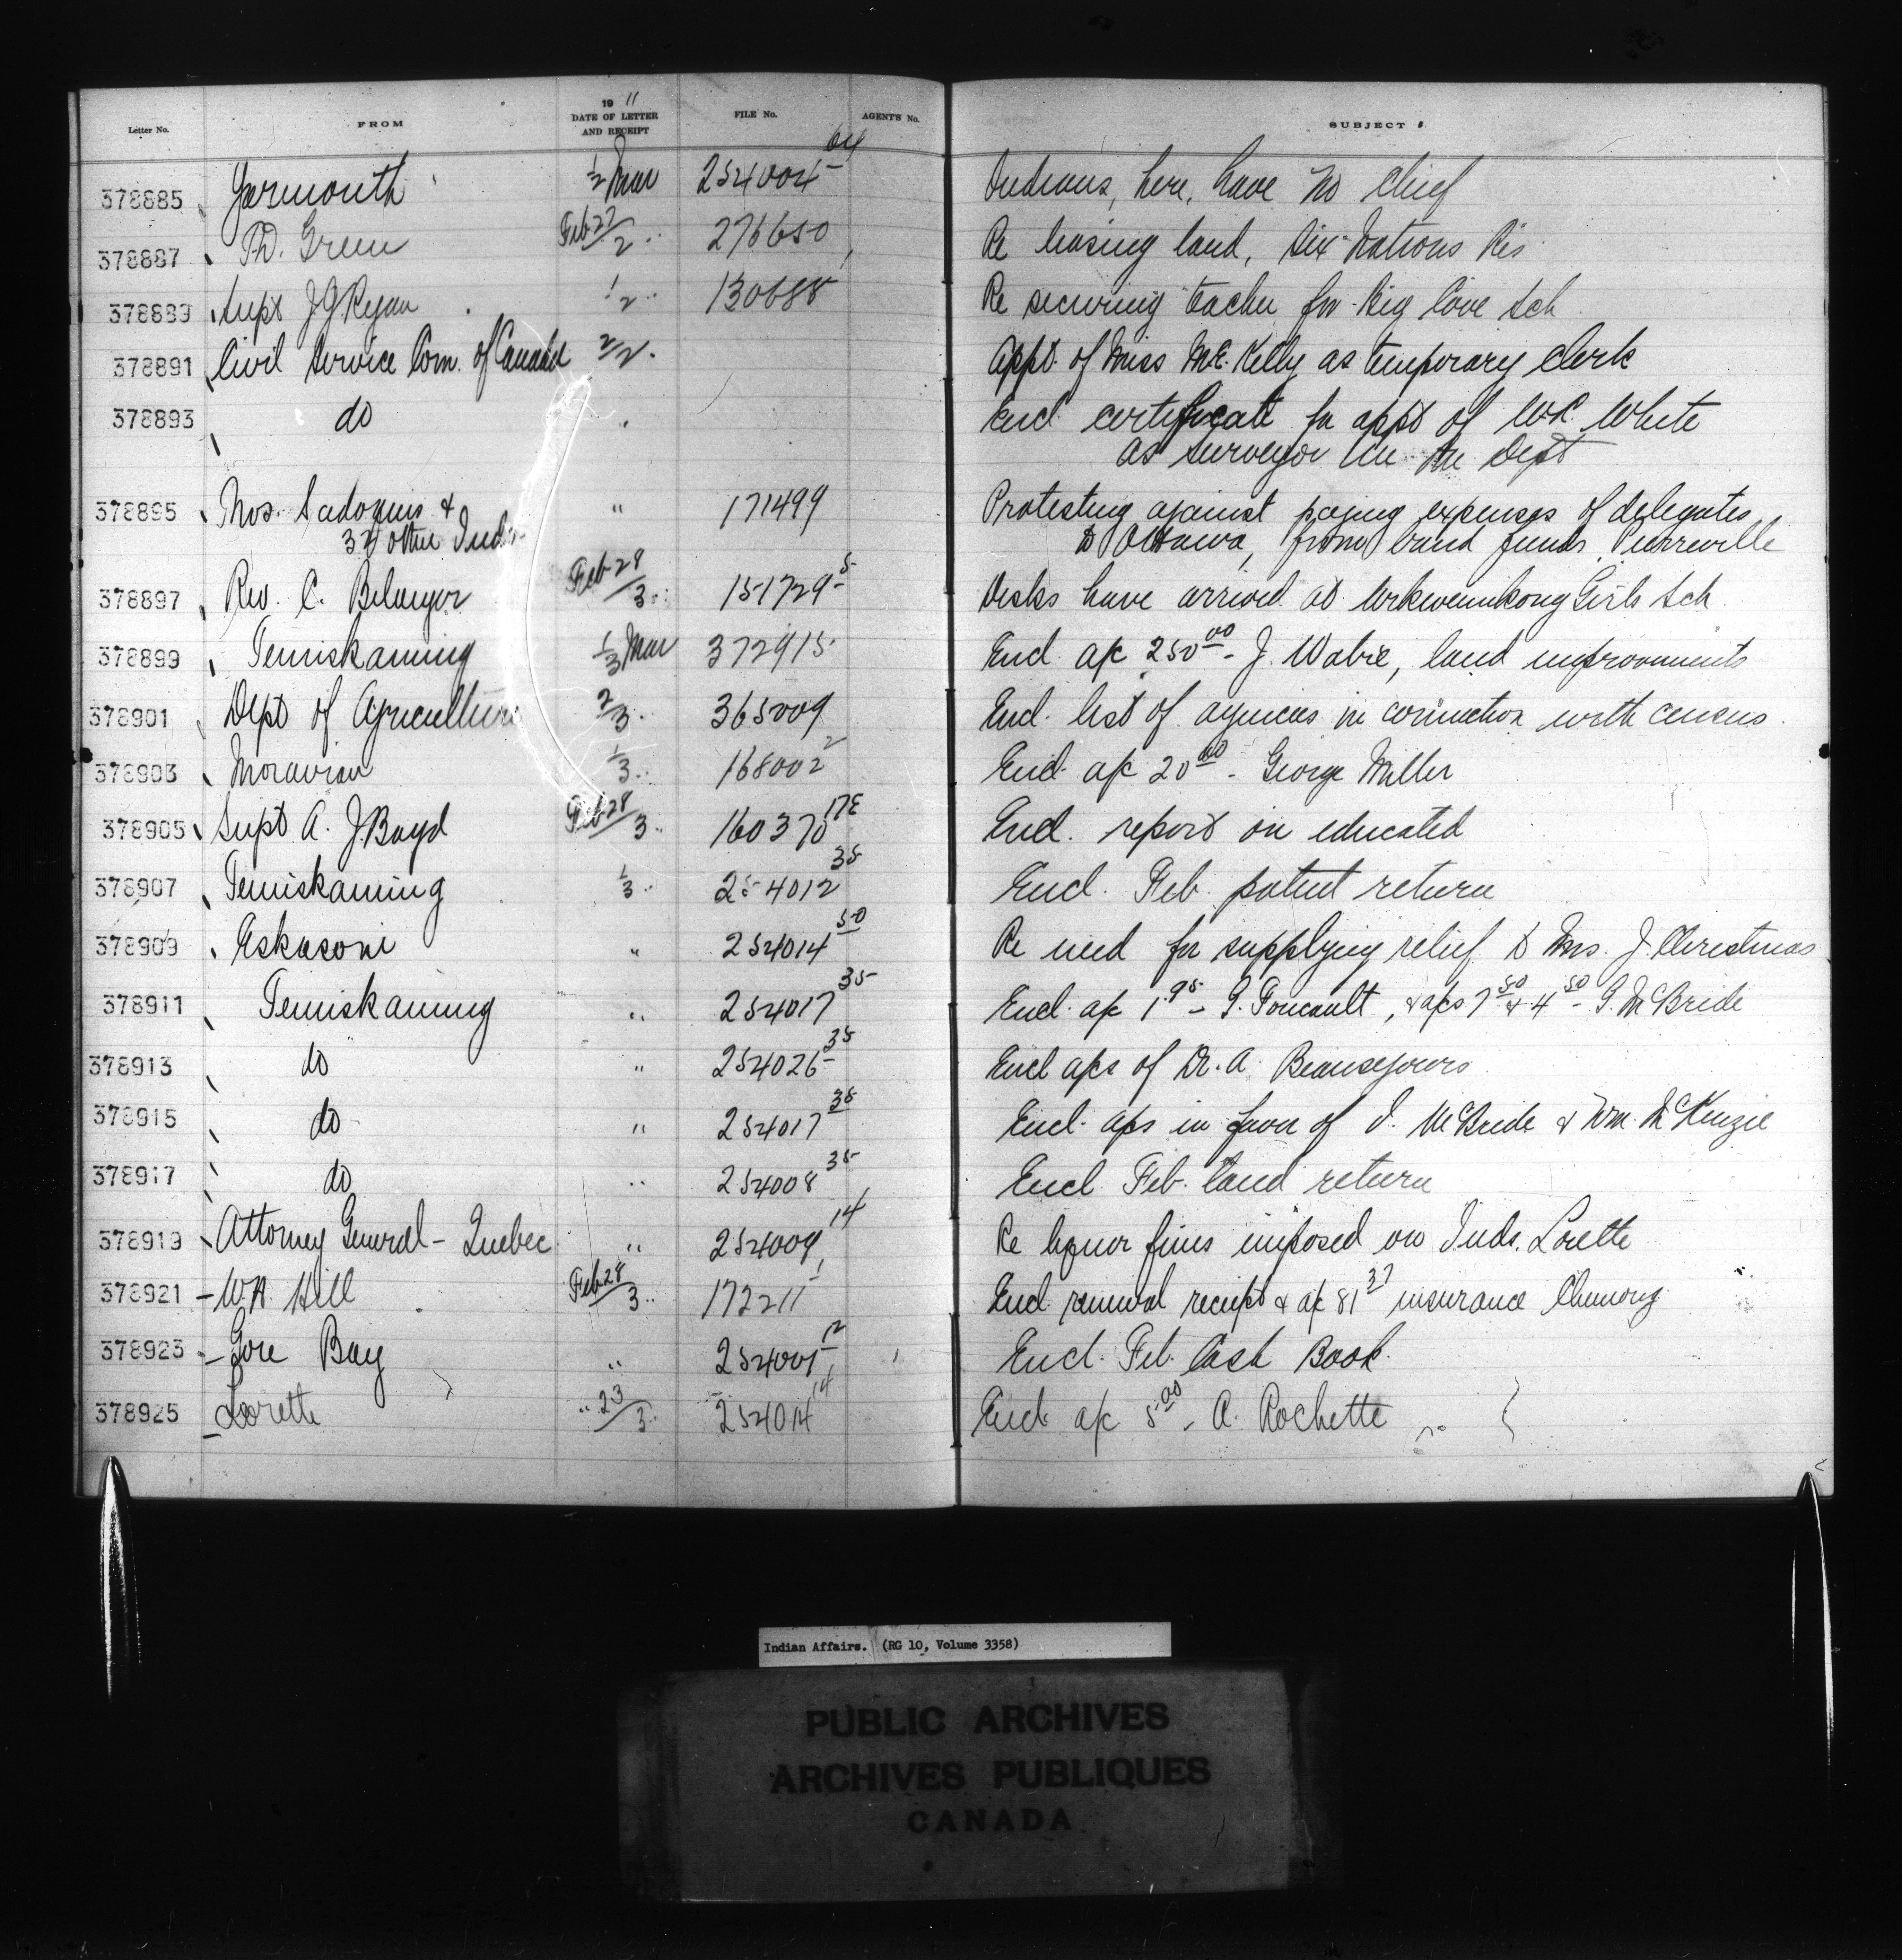 Letter No. FROM 19 11 DATE OF LETTER AND RECEIPT FILE No. AGENT'S No. SUBJECT
378885 Yarmouth 1/2 Mar 254004-64 Indians, here, have no Chief
378887 T.D. Green Feb 27/2 " 276650 Re leasing land, Six Nations Res
378889 Supt J G Ryan 1/2 " 130688 Re securing teacher for Big Cove Sch
378891 Civil Service Com. of Canada 2/2 " Appt. of Miss M.E. Kelly as temporary Clerk
378893 do " Encl certificate for appt of W.R. White
as surveyor in the Dept
378895 " 171499 Protesting against paying expenses of delegates
32 other Inds. to Ottawa, from band funds, Pierreville
378897 Rev. C. Belanger Feb 28/3 " 151729-5 Desks have arrived at Girls Sch
378899 Temiskaming 1/3 Mar 372915 Encl. a/c 250.00 - J. Wabie, land improvements
378901 Dept of Agriculture 2/3 " 365009 Encl. list of agencies in connection with census
378903 Moravian 1/3 " 168002-2 Encl. a/c 20.00 - George Miller
378905 Supt A. J. Boyd Feb 28/3 " 160370-17E Encl. report on educated
378907 Temiskaming 1/3 " 254012-35 Encl. Feb. patent return
378909 Eskasoni " 254014-50 Re need for supplying relief to Mrs. J. Christmas
378911 Temiskaming " 254017-35 Encl. a/c 1.95 - G. Foucault, & a/cs 7.50 & 4.50 - G. McBride
378913 do " 254026-35 Encl a/cs of Dr. A. Beausejours
378915 do " 254017-35 Encl. a/cs in favor of J. McBride & Wm. McKenzie
378917 do " 254008-35 Encl Feb. land return
378919 Attorney General - Quebec " 254009-14 Re liquor fines imposed on Inds. Lorette
378921 W.A. Hill Feb 28/3 " 172211 Encl. renewal receipt & a/c 81.37 insurance Chemong
378923 Gore Bay " 254001-12 Encl. Feb. Cash Book
378925 Lorette " 23/3 " 254014-14 Encl. a/c 5.00, A. Rochette
Indian Affairs. (RG 10, Volume 3358)
PUBLIC ARCHIVES
ARCHIVES PUBLIQUES
CANADA